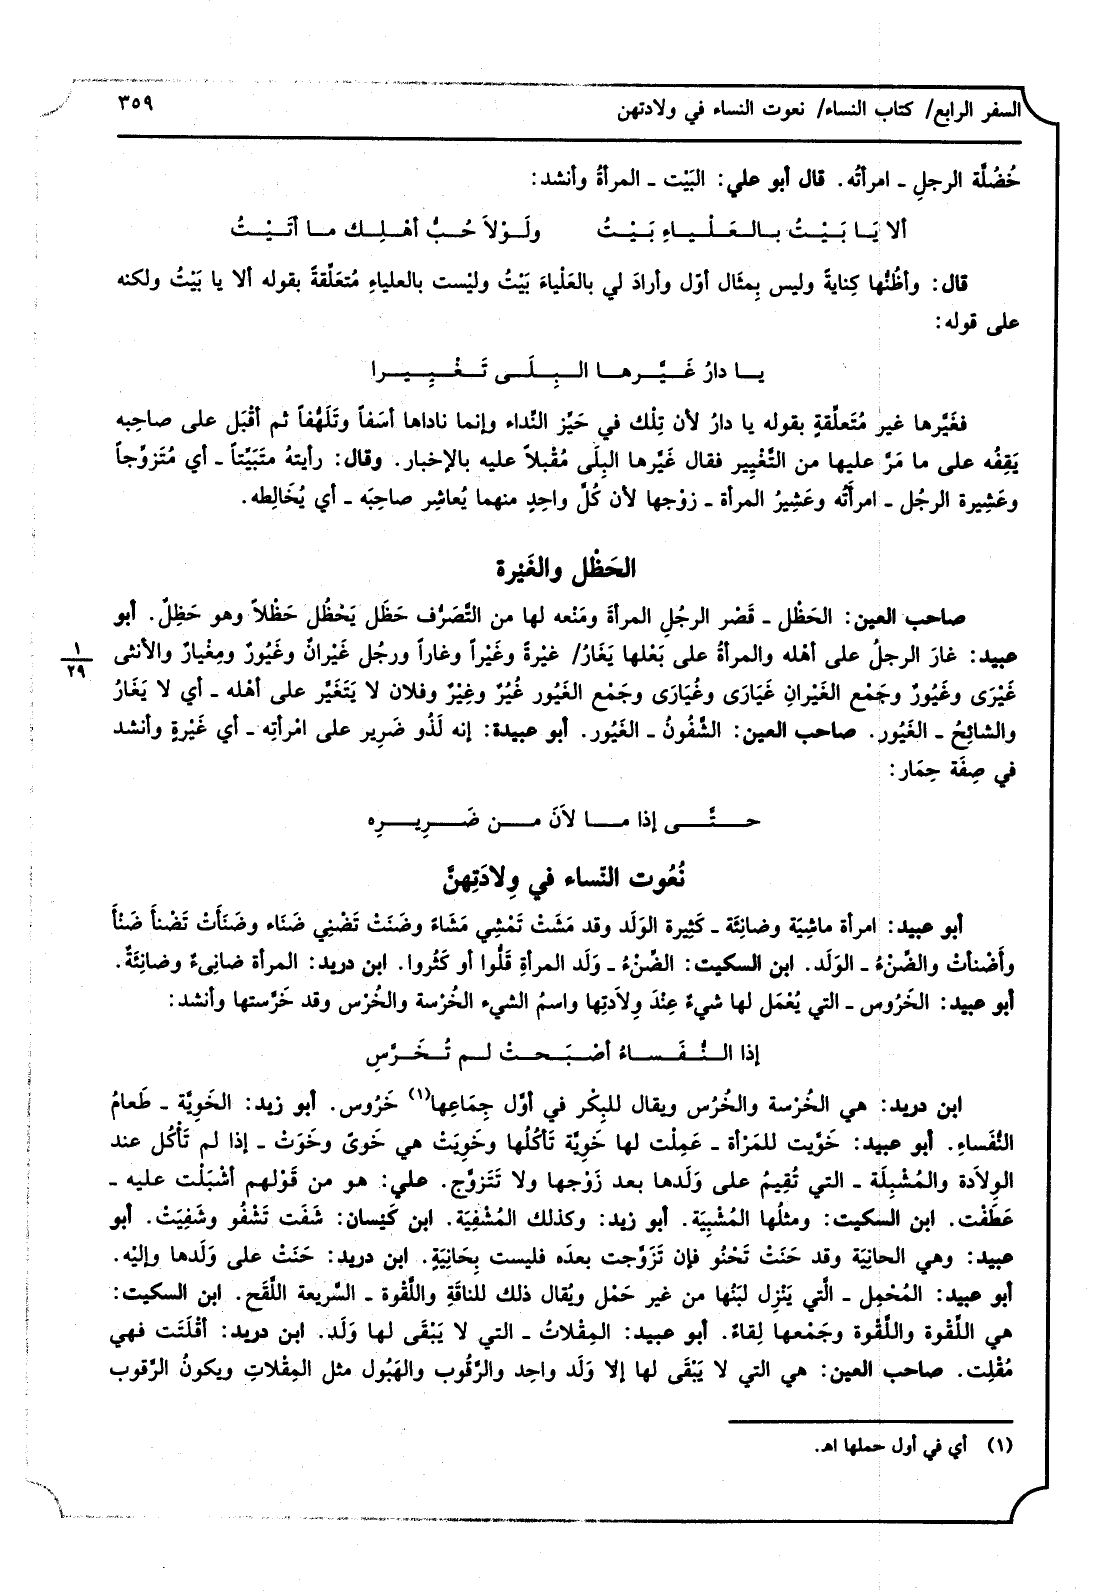 السفر الرابع/ كتاب النساء/ نعوت النساء في ولادتهن
٣٥٩
خُضُلَّة الرجلِ ـ امرأتُه. قال أبو علي: البَيْت ـ المرأةُ وأنشد:
ألا يَا بَيْتُ بالعَلْياءِ بَيْتُ ولَوْلاَ حُبُّ أهْلِك ما أتَيْتُ
قال: وأظُنُّها كِنايةً وليس بِمثَال أوّل وأرادَ لي بالعَلْياءَ بَيْتُ وليْست بالعلياءِ مُتعَلِّقةً بقوله ألا يا بَيْتُ ولكنه
على قوله:
يا دارُ غَيَّرها البِلَى تَغْيِيرا
فغَيَّرها غير مُتعلِّقةٍ بقوله يا دارُ لأن تِلْك في حَيِّز النِّداء وإنما ناداها أسَفاً وتَلَهُّفاً ثم أقْبَل على صاحِبه
يَقِفُه على ما مَرَّ عليها من التَّغْيِير فقال غَيَّرها البِلَى مُقْبلاً عليه بالإخبار. وقال: رأيتهُ متَبَيِّتاً ـ أي مُتَزوِّجاً
وعَشِيرة الرجُل ـ امرأتُه وعَشِيرُ المرأة ـ زوْجها لأن كُلَّ واحِدٍ منهما يُعاشِر صاحِبَه ـ أي يُخَالِطه.
الحَظْل والغَيْرة
صاحب العين: الحَظْل ـ قَصْر الرجُلِ المرأةَ ومَنْعه لها من التَّصَرُّف حَظَل يَحْظُل حَظْلاً وهو حَظِلٌ. أبو
عبيد: غارَ الرجلُ على أهْله والمرأةُ على بَعْلها يَغَارُ/ غيْرةً وغَيْراً وغاراً ورجُل غَيْرانٌ وغَيُورٌ ومِغْيارٌ والأنثى
١
٢٩
غَيْرَى وغَيُورٌ وجَمْع الغَيْرانِ غَيَارَى وغُيَارَى وجَمْع الغَيُور غُيُرٌ وغِيْرٌ وفلان لا يَتَغَيَّر على أهْله ـ أي لا يَغَارُ
والشائِحُ ـ الغَيُور. صاحب العين: الشَّفُونُ ـ الغَيُور. أبو عبيدة: إنه لَذُو ضَرِير على امْرأتِه ـ أي غَيْرةٍ وأنشد
في صِفَة حِمَار:
حتَّى إذا ما لاَنَ من ضَرِيرِه
نُعُوت النّساء في وِلادَتِهنَّ
أبو عبيد: امرأة ماشِيَة وضانِئَة ـ كَثِيرة الوَلَد وقد مَشَتْ تَمْشِي مَشَاءً وضَنَتْ تَضْنِي ضَنَاء وضَنَأَتْ تَضْنأ ضَنْأً
وأَضْنأتْ والضِّنْءُ ـ الوَلَد. ابن السكيت: الضِّنْءُ ـ وَلَد المرأةِ قَلُّوا أو كَثُروا. ابن دريد: المرأة ضانِىءٌ وضانِئَةٌ.
أبو عبيد: الخَرُوس ـ التي يُعْمَل لها شيءٌ عِنْدَ وِلاَدتِها واسمُ الشيء الخُرْسة والخُرْس وقد خَرَّستها وأنشد:
إذا النُّفَساءُ أصْبَحتْ لم تُخَرَّسِ
ابن دريد: هي الخُرْسة والخُرُس ويقال للبِكْر في أوَّل جِمَاعِها(١) خَرُوس. أبو زيد: الخَوِيَّة ـ طَعامُ
النُّفَساءِ. أبو عبيد: خَوَّيت للمَرْأة ـ عَمِلْت لها خَوِيَّة تَأكُلُها وخَوِيَتْ هي خَوىً وخَوَتْ ـ إذا لم تَأْكُل عند
الوِلاَدة والمُشْبِلَة ـ التي تُقِيمُ على وَلَدها بعد زَوْجها ولا تَتَزوَّج. علي: هو من قَوْلهم أشْبَلْت عليه ـ
عَطَفْت. ابن السكيت: ومثلُها المُشْبِيَة. أبو زيد: وكذلك المُشْفِيَة. ابن كَيْسان: شَفَت تَشْفُو وشَفِيَتْ. أبو
عبيد: وهي الحانِيَة وقد حَنَتْ تَحْنُو فإن تَزَوَّجت بعدَه فليست بِحَانِيَةٍ. ابن دريد: حَنَتْ على وَلَدها وإليْه.
أبو عبيد: المُحْمِل ـ الَّتي يَنْزِل لبَنُها من غير حَمْل ويُقال ذلك للناقَةِ واللَّقْوة ـ السَّرِيعة اللَّقَح. ابن السكيت:
هي اللَّقْوة واللِّقْوة وجَمْعها لِقاءً. أبو عبيد: المِقْلاتُ ـ التي لا يَبْقَى لها وَلَد. ابن دريد: أقْلَتَت فهي
مُقْلِت. صاحب العين: هي التي لا يَبْقَى لها إلا وَلَد واحِد والرَّقُوب والهَبُول مثل المِقْلاتِ ويكونُ الرَّقوب
(١) أي في أول حملها اهـ.